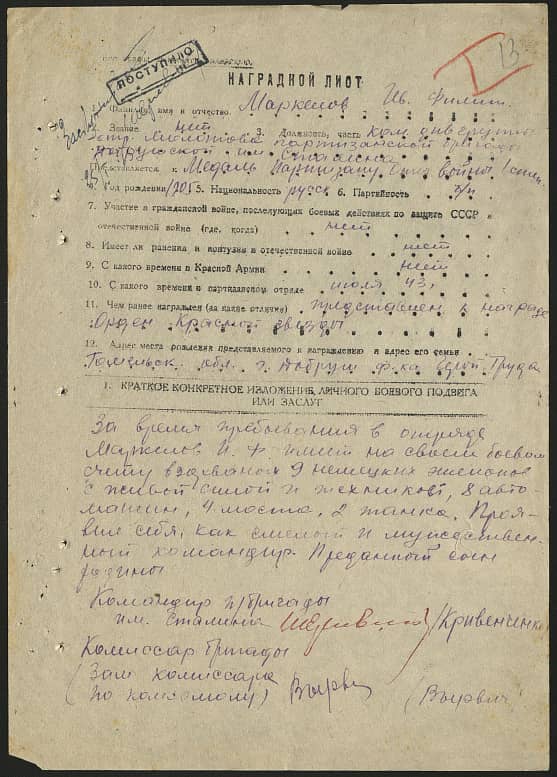 ПОСТУПИЛО
13
НАГРАДНОЙ ЛИСТ
Фамилия, имя и отчество Маркелов Ив. Филип.
2. Звание нет 3. Должность, часть ком. див. группы
отр. Молотова партизанской бригады
Добрушской им. Сталина
Представляется к Медаль Партизану Отеч войны I степ.
Год рождения 1905 5. Национальность русск 6. Партийность б/п
7. Участие в гражданской войне, последующих боевых действиях по защите СССР и
отечественной войне (где, когда) нет
8. Имеет ли ранения и контузии в отечественной войне нет
9. С какого времени в Красной Армии нет
10. С какого времени в партизанском отряде июля 43г.
11. Чем ранее награжден (за какие отличия) представлен к награде
Орден Красной звезды
12. Адрес места рождения представляемого к награждению и адрес его семьи
Гомельск. обл. г. Добруш ф-ка Герой Труда
I. КРАТКОЕ КОНКРЕТНОЕ ИЗЛОЖЕНИЕ ЛИЧНОГО БОЕВОГО ПОДВИГА
ИЛИ ЗАСЛУГ
За время пребывания в отряде
Маркелов И. Ф. имеет на своем боевом
счету взорваных 9 немецких эшелонов
с живой силой и техникой, 8 авто-
машин, 4 моста, 2 танка. Проя-
вил себя, как смелый и мужествен-
ный командир. Преданный сын
родины
Командир п/бригады
им. Сталина /Кривенченко
Комиссар бригады
(Зам комиссара
по комсомолу) Вырвич (Вырвич)